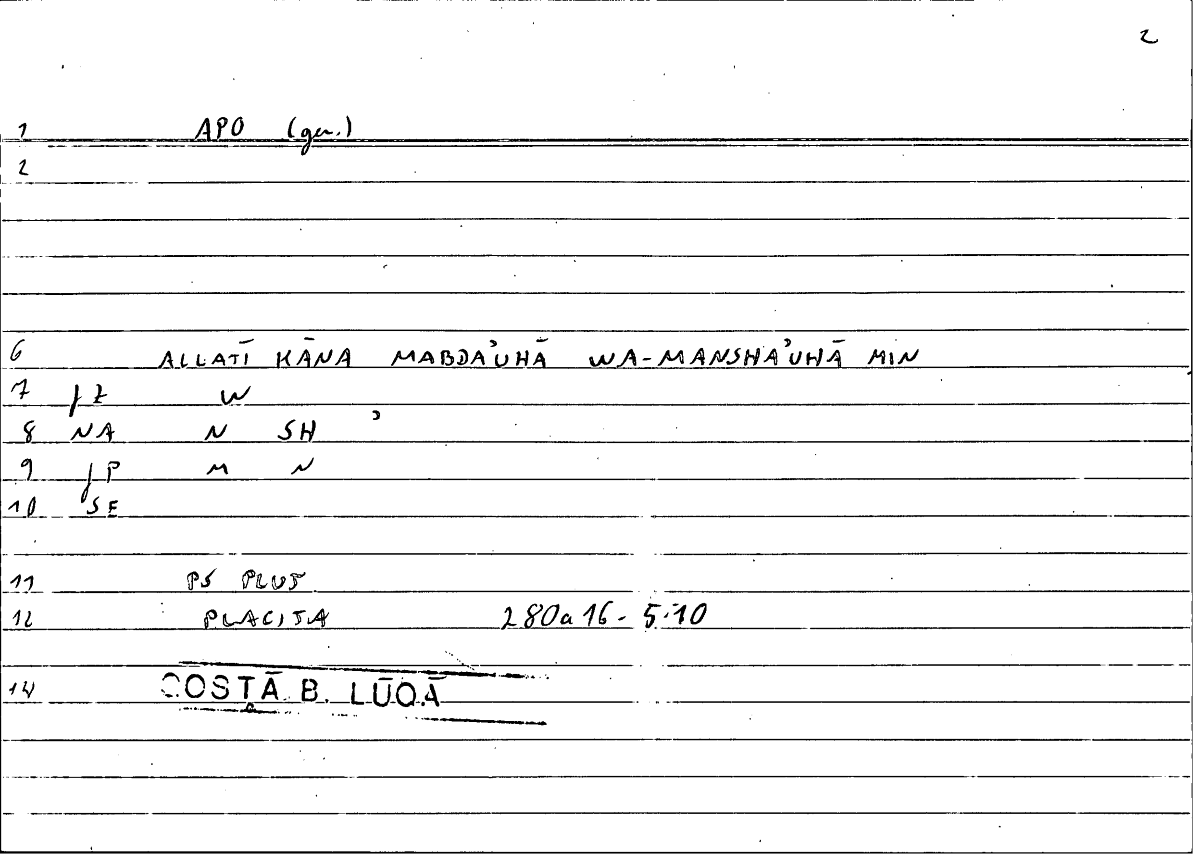 2
1 APO (gen.)
2
6 ALLATĪ KĀNA MABDAʾUHĀ WA-MANSHAʾUHĀ MIN
7 W
8 NA N SH ʾ
9 M N
10 SE
11 PS PLUT
12 PLACITA 280a16 - 5.10
14 COSṬĀ B. LŪQĀ